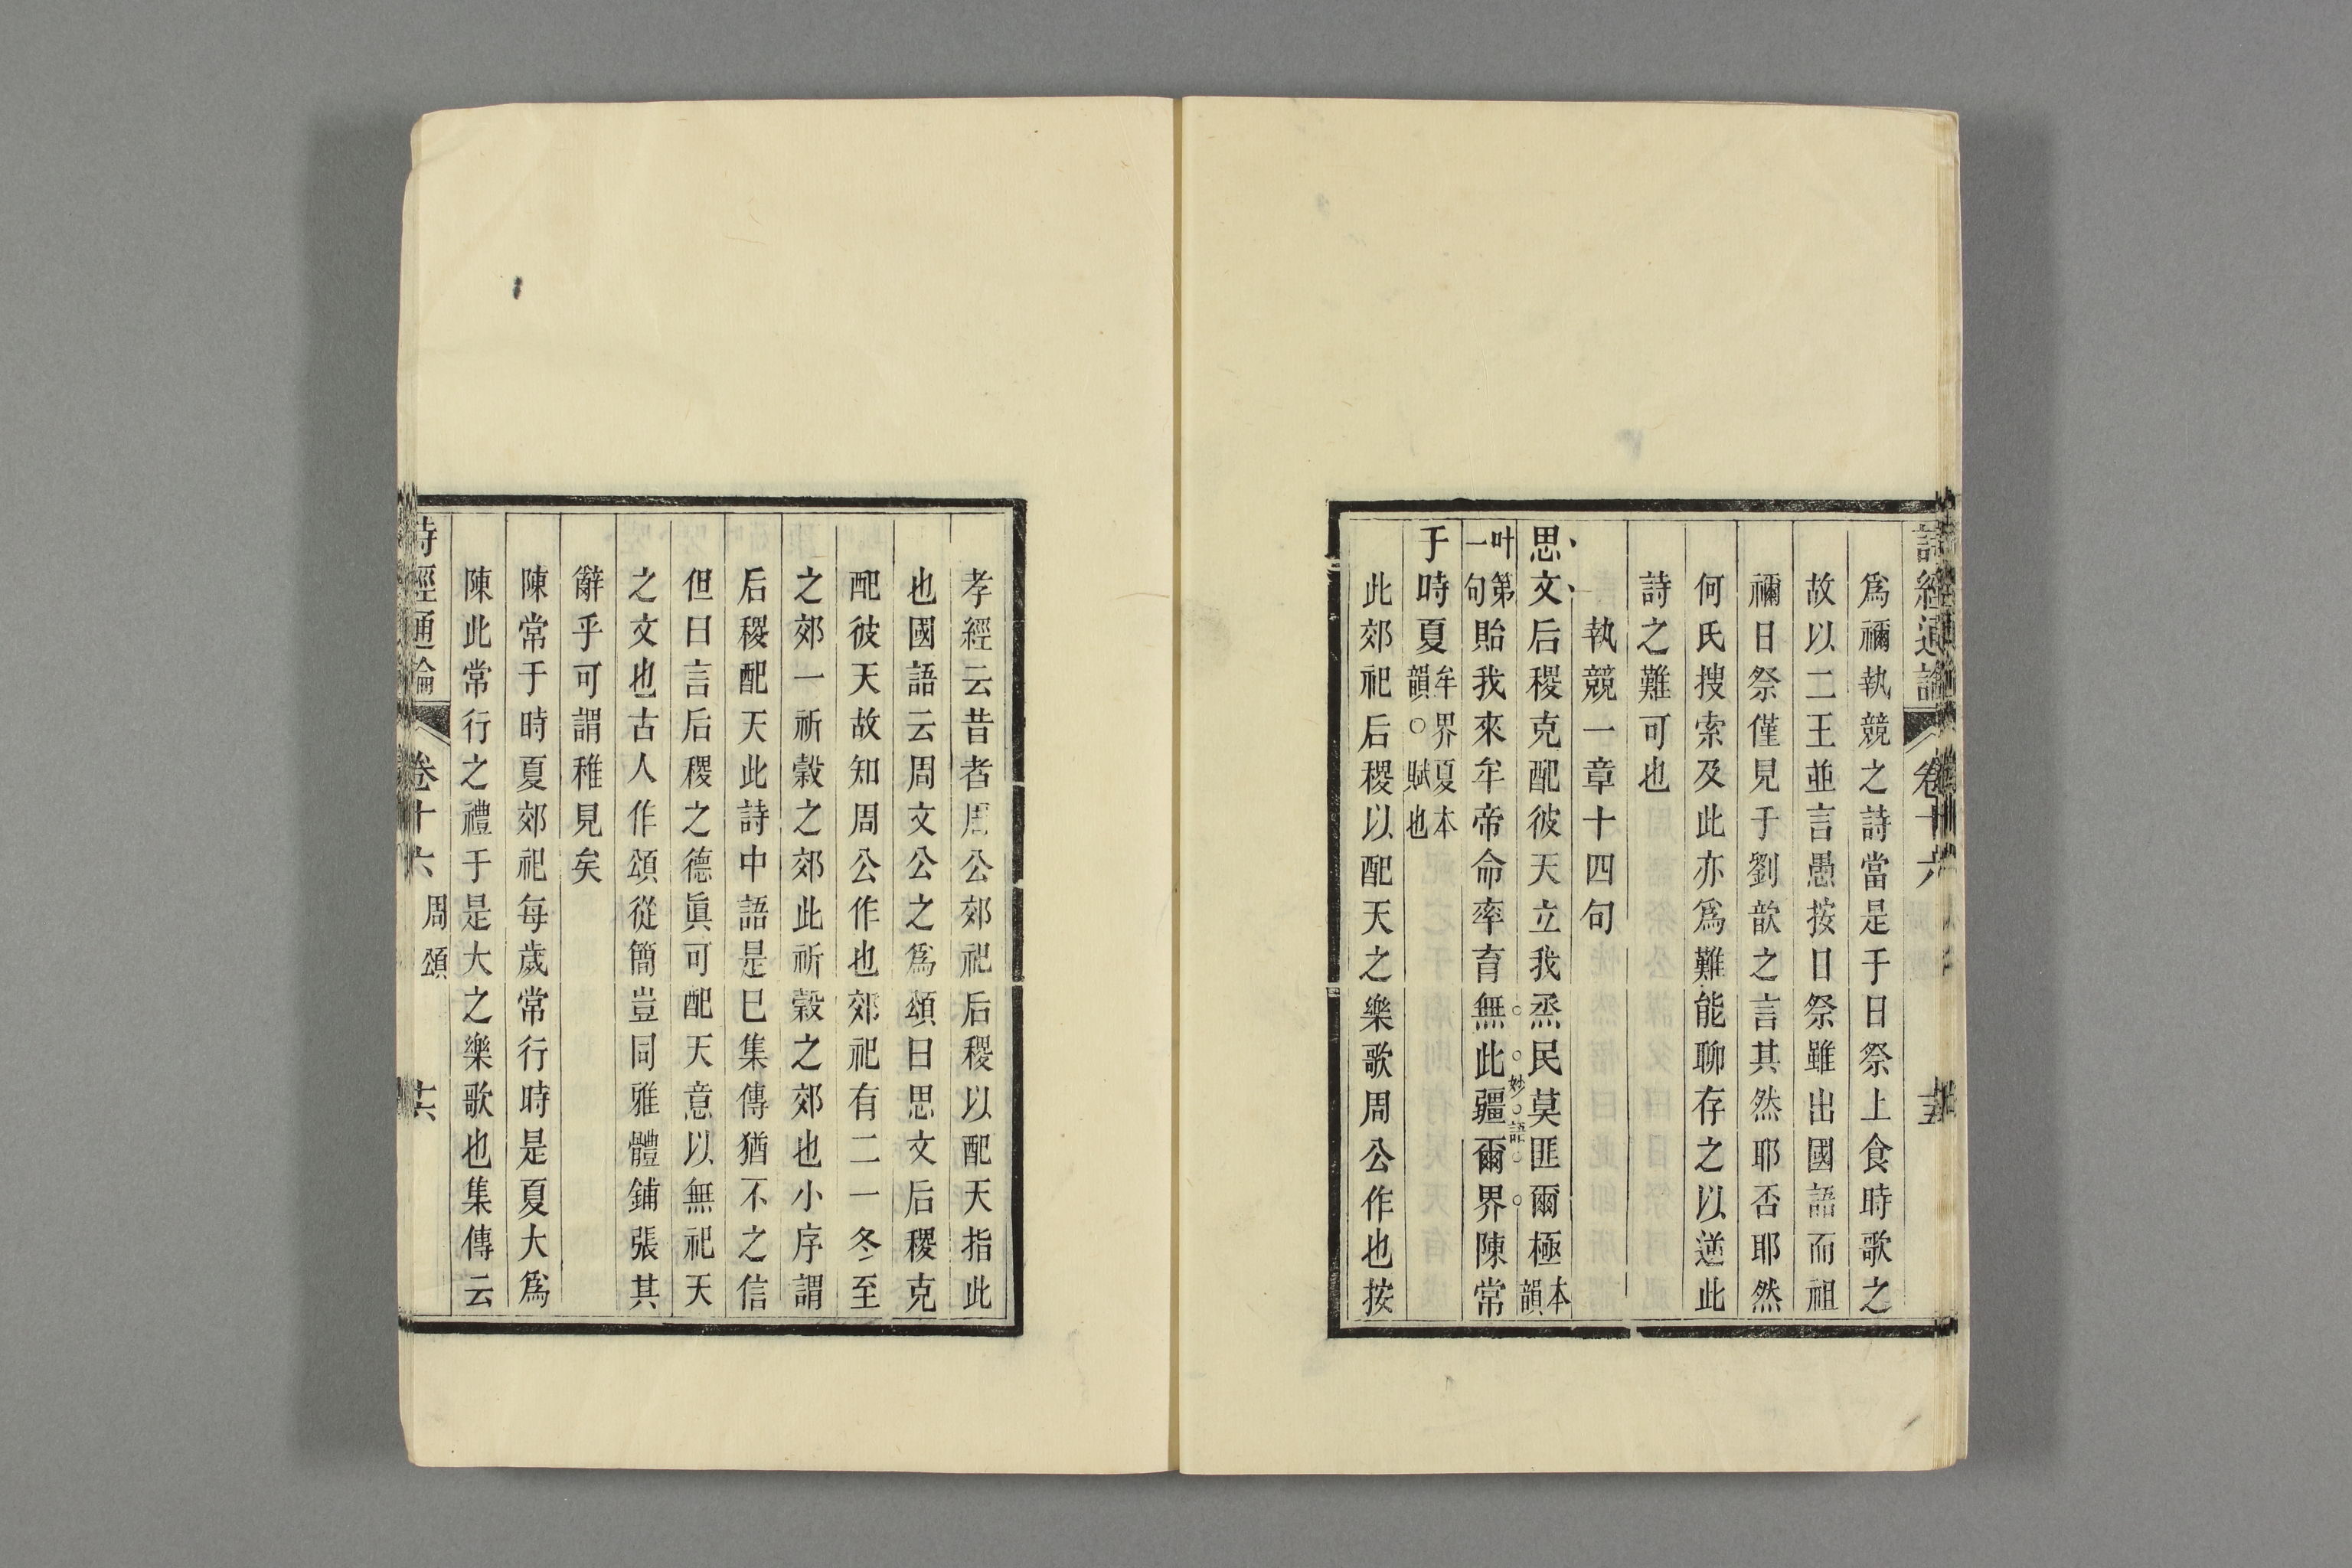 詩經通論 卷十六
爲禰執競之詩當是于日祭上食時歌之
故以二王並言愚按日祭雖出國語而祖
禰日祭僅見于劉歆之言其然耶否耶然
何氏搜索及此亦爲難能聊存之以遂此
詩之難可也
執競一章十四句
思文后稷克配彼天立我烝民莫匪爾極本韻
叶第一句貽我來牟帝命率育無此疆爾界陳常
妙語
于時夏牟界夏本韻○賦也
此郊祀后稷以配天之樂歌周公作也按
孝經云昔者周公郊祀后稷以配天指此
也國語云周文公之爲頌曰思文后稷克
配彼天故知周公作也郊祀有二一冬至
之郊一祈穀之郊此祈穀之郊也小序謂
后稷配天此詩中語是已集傳猶不之信
但曰言后稷之德眞可配天意以無祀天
之文也古人作頌從簡豈同雅體鋪張其
辭乎可謂稚見矣
陳常于時夏郊祀每歲常行時是夏大爲
陳此常行之禮于是大之樂歌也集傳云
詩經通論 卷十六 周頌 十六